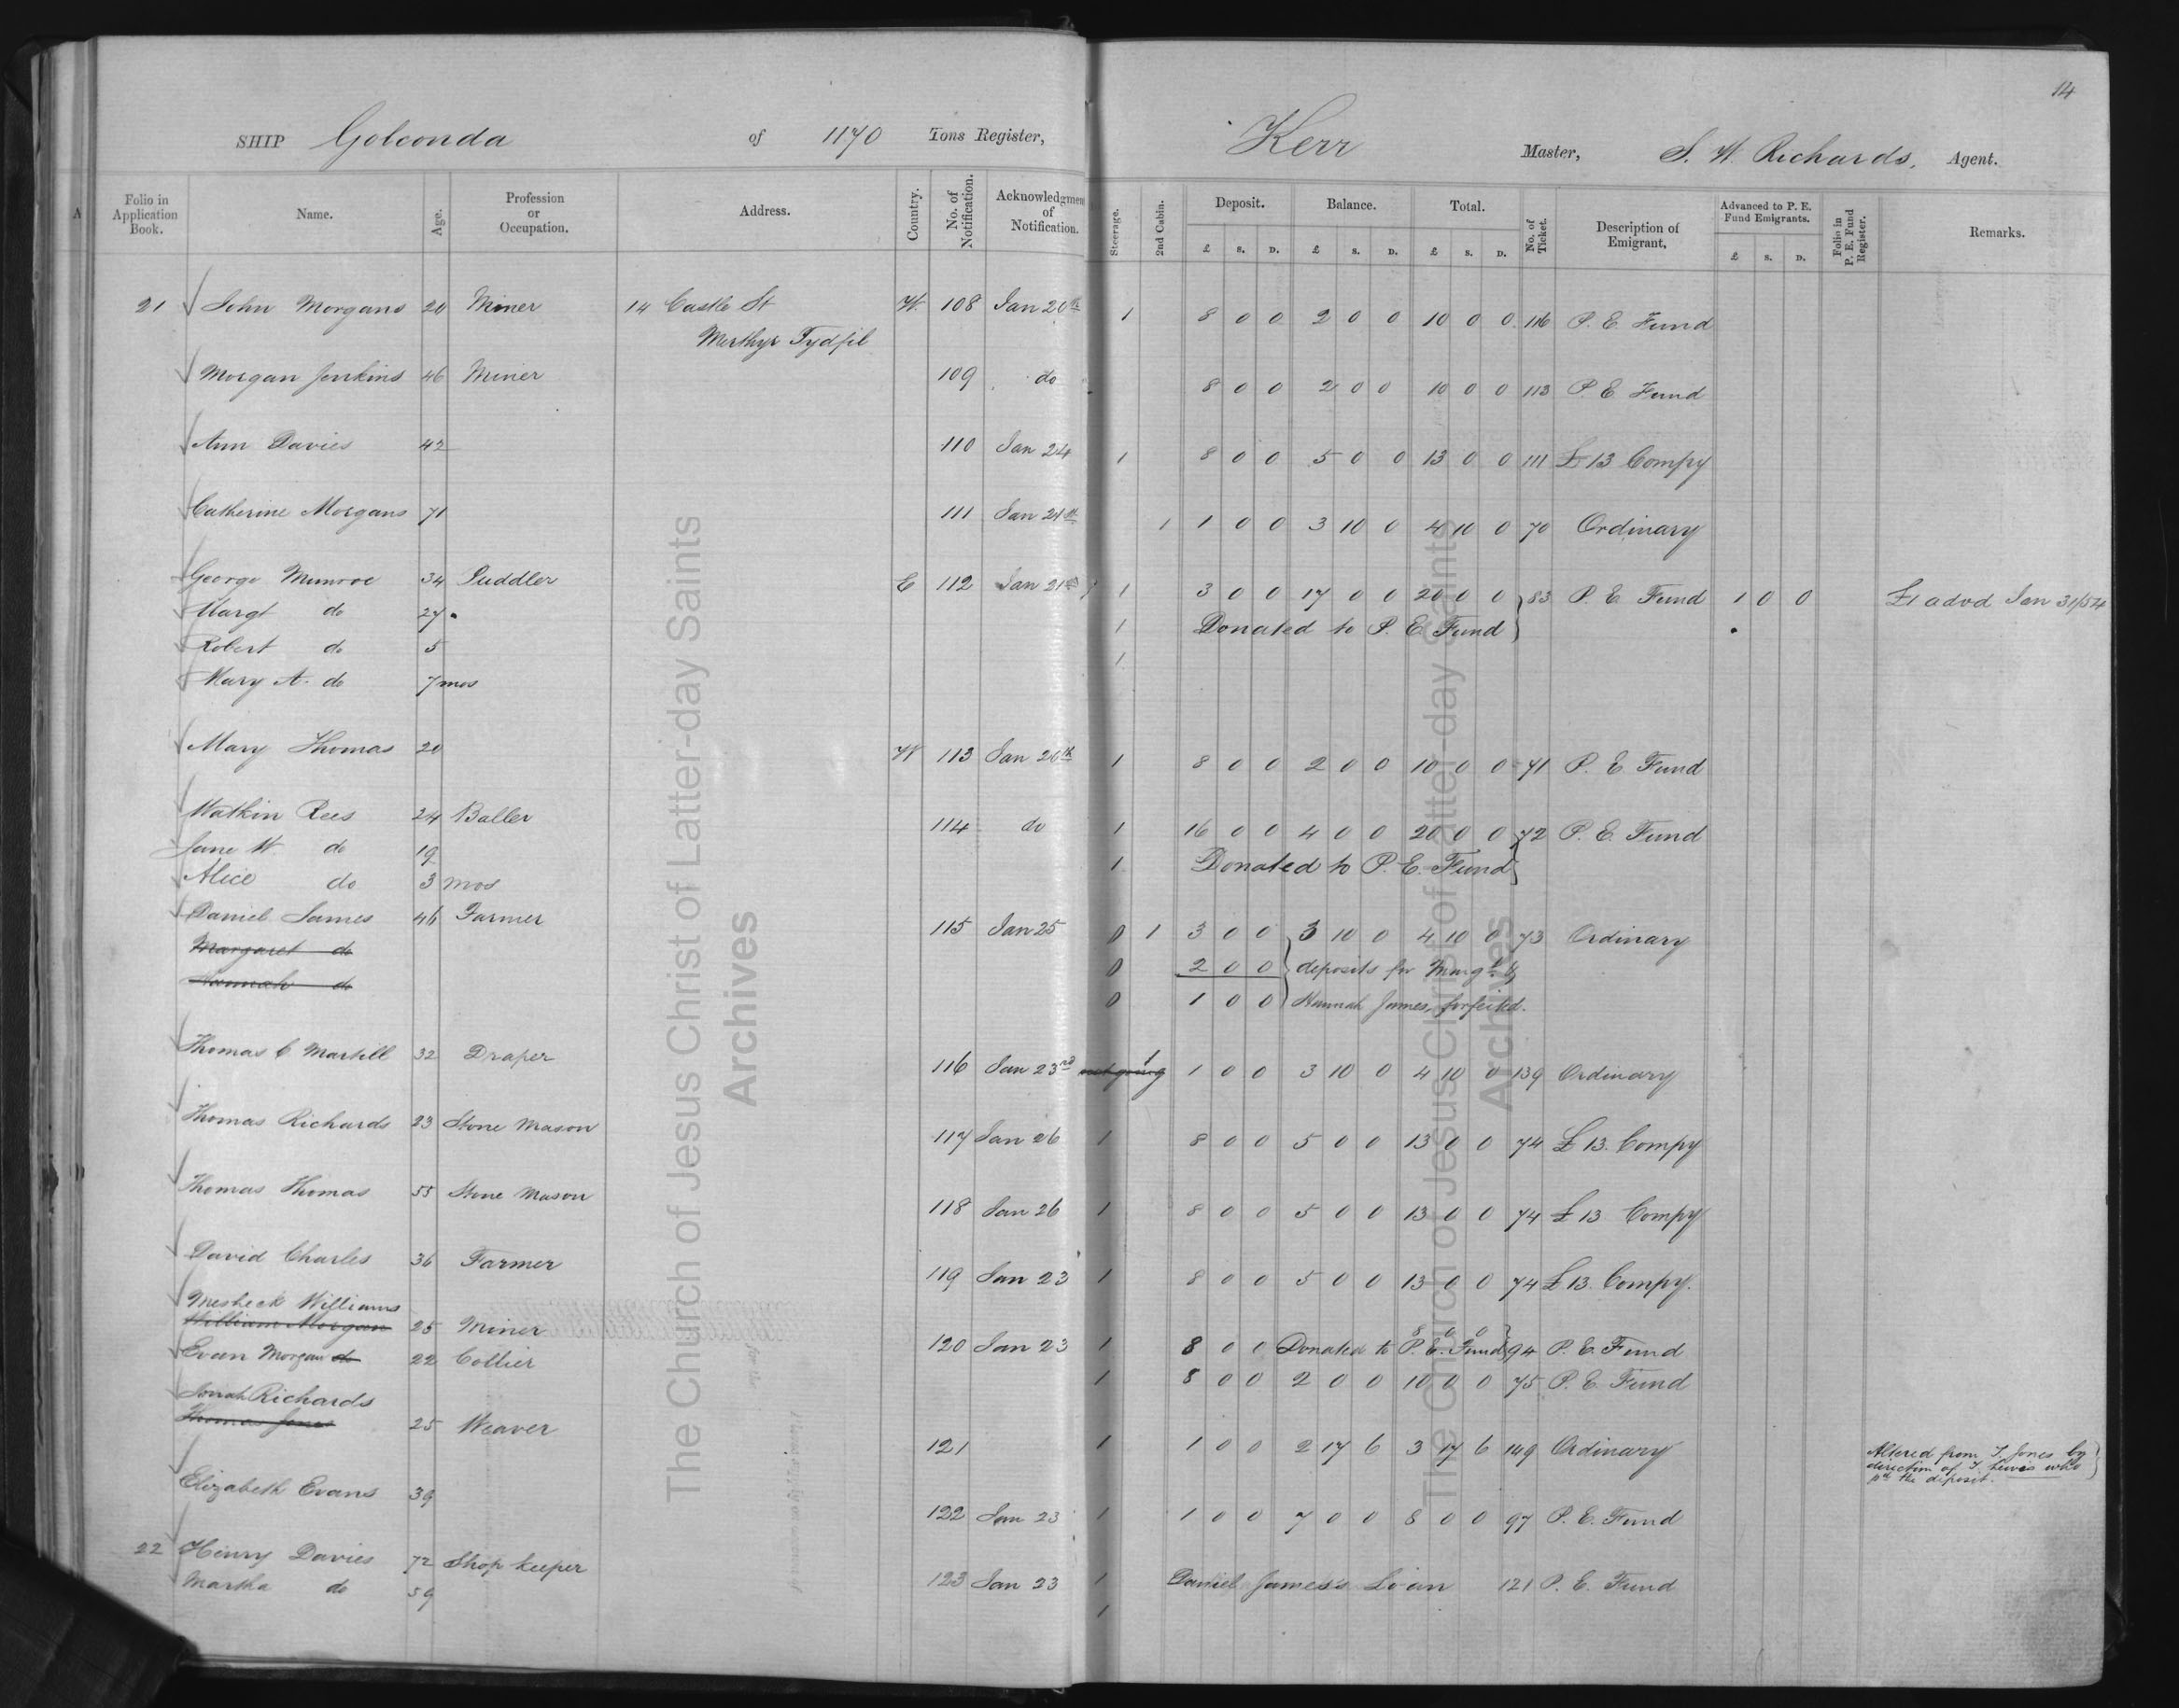 14
SHIP Golconda of 1170 Tons Register, Kerr Master, S. W. Richards, Agent.
Folio in Application Book. Name. Age. Profession or Occupation. Address. Country. No. of Notification. Acknowledgment of Notification. Steerage. 2nd Cabin. Deposit. Balance. Total. No. of Ticket. Description of Emigrant. Advanced to P. E. Fund Emigrants. Folio in P. E. Fund Register. Remarks.
£ S. D. £ S. D. £ S. D. £ S. D.
21 John Morgans 20 Miner 14 Castle St W. 108 Jan 20th 1 8 0 0 2 0 0 10 0 0 116 P. E. Fund
Merthyr Tydfil
Morgan Jenkins 46 Miner 109 do 8 0 0 2 0 0 10 0 0 113 P. E. Fund
Ann Davies 42 110 Jan 24 1 8 0 0 5 0 0 13 0 0 111 £13 Compy
Catherine Morgans 71 111 Jan 21st 1 1 0 0 3 10 0 4 10 0 70 Ordinary
George Munroe 34 Puddler E 112 Jan 21st 1 3 0 0 17 0 0 20 0 0 83 P. E. Fund 1 0 0 £1 advd Jan 31/54
Margt do 27 1 Donated to P. E. Fund
Robert do 5 1
Mary A. do 7 mos
Mary Thomas 20 W 113 Jan 26th 1 8 0 0 2 0 0 10 0 0 71 P. E. Fund
Watkin Rees 24 Baller 114 do 1 16 0 0 4 0 0 20 0 0 72 P. E. Fund
Jane W do 19 1 Donated to P. E. Fund
Alice do 3 mos
Daniel James 46 Farmer 115 Jan 25 0 1 3 0 0 3 10 0 4 10 0 73 Ordinary
Margaret do 0 2 0 0 deposits for Margt &
Hannah do 0 1 0 0 Hannah James, forfeited.
Thomas C Martell 32 Draper 116 Jan 23rd not going 1 1 0 0 3 10 0 4 10 0 139 Ordinary
Thomas Richards 23 Stone Mason 117 Jan 26 1 8 0 0 5 0 0 13 0 0 74 £13. Compy
Thomas Thomas 55 Stone Mason 118 Jan 26 1 8 0 0 5 0 0 13 0 0 74 £13 Compy
David Charles 36 Farmer 119 Jan 23 1 8 0 0 5 0 0 13 0 0 74 £13. Compy.
Mesheck Williams
William Morgan 25 Miner 120 Jan 23 1 8 0 0 Donated to P. E. Fund 8 0 0 94 P. E. Fund
Evan Morgan do 22 Collier 1 8 0 0 2 0 0 10 0 0 75 P. E. Fund
Jonah Richards
Thomas Jones 25 Weaver 121 1 1 0 0 2 17 6 3 17 6 149 Ordinary Altered from T. Jones by
direction of T. Lewis who
pd the deposit.
Elizabeth Evans 39 122 Jan 23 1 1 0 0 7 0 0 8 0 0 97 P. E. Fund
22 Henry Davies 72 Shop keeper 123 Jan 23 1 Daniel James's Loan 121 P. E. Fund
Martha do 59 1
The Church of Jesus Christ of Latter-day Saints
Archives
The Church of Jesus Christ of Latter-day Saints
Archives